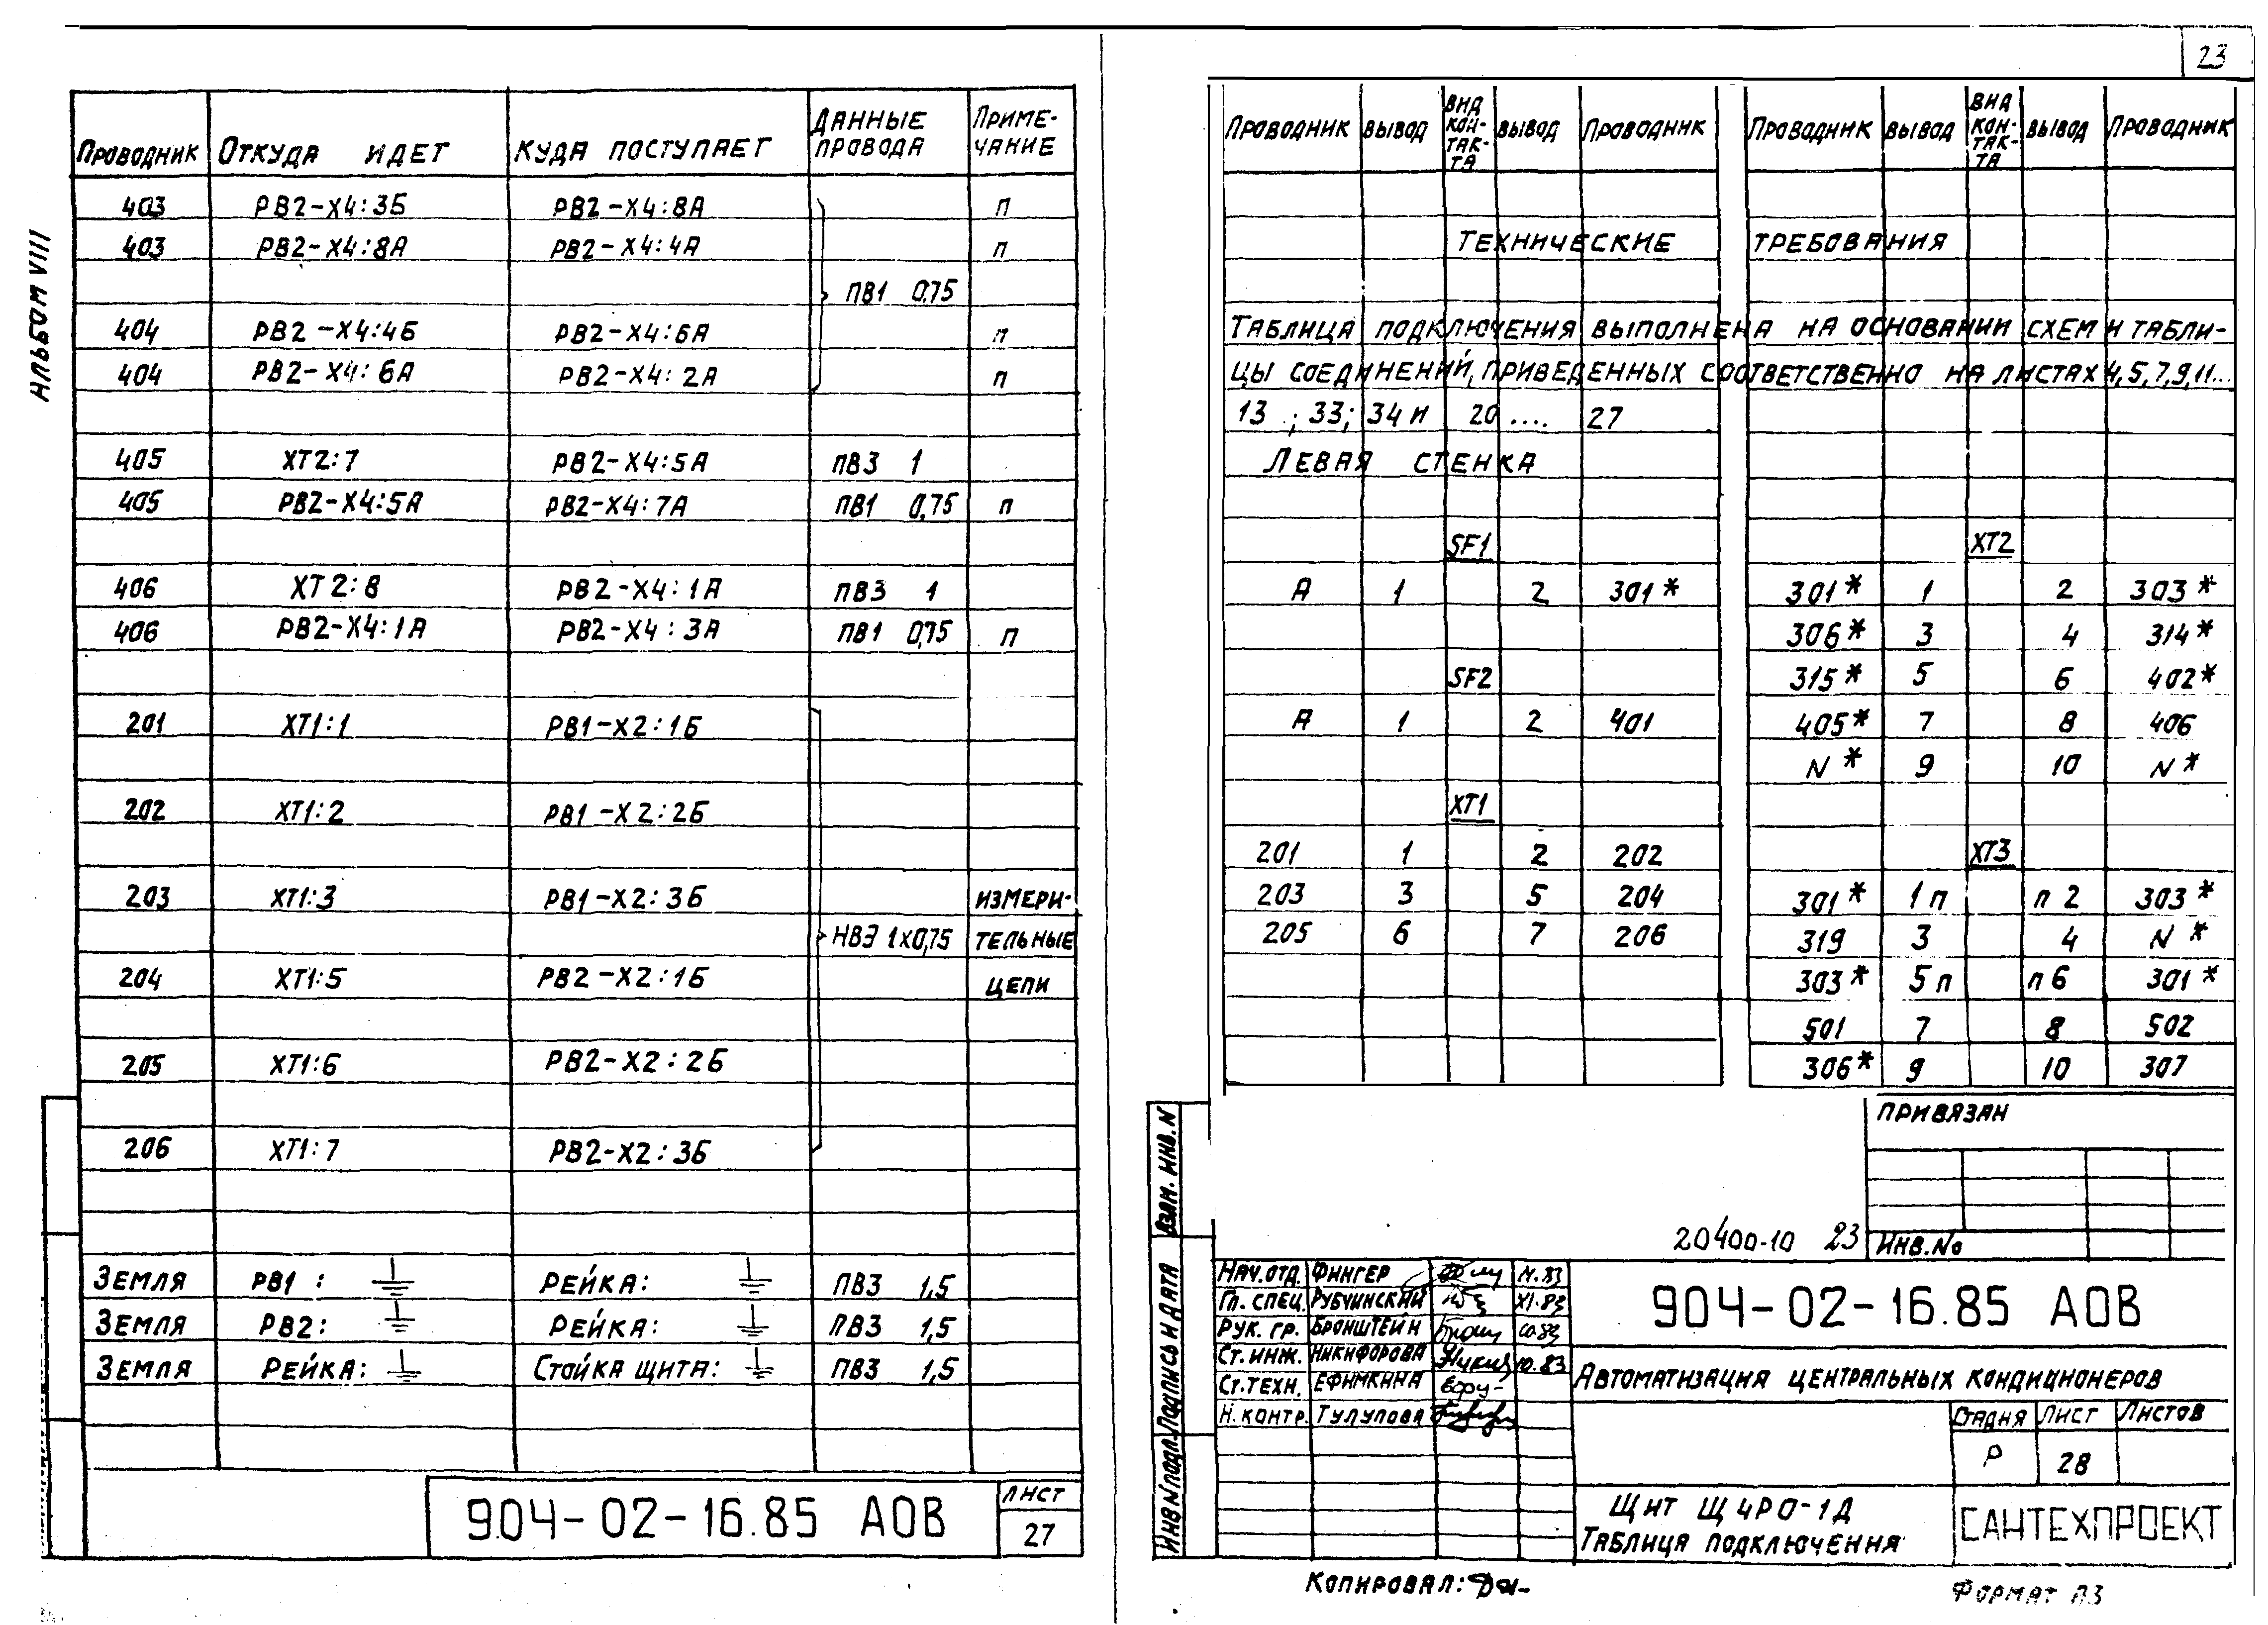 23
Альбом VIII
Проводник Откуда идет Куда поступает Данные провода Приме-чание
403 РВ2-Х4:3Б РВ2-Х4:8А п
403 РВ2-Х4:8А РВ2-Х4:4А п
ПВ1 0,75
404 РВ2-Х4:4Б РВ2-Х4:6А п
404 РВ2-Х4:6А РВ2-Х4:2А п
405 ХТ2:7 РВ2-Х4:5А ПВ3 1
405 РВ2-Х4:5А РВ2-Х4:7А ПВ1 0,75 п
406 ХТ2:8 РВ2-Х4:1А ПВ3 1
406 РВ2-Х4:1А РВ2-Х4:3А ПВ1 0,75 п
201 ХТ1:1 РВ1-Х2:1Б
202 ХТ1:2 РВ1-Х2:2Б
203 ХТ1:3 РВ1-Х2:3Б измери-
НВЭ 1х0,75 тельные
204 ХТ1:5 РВ2-Х2:1Б цепи
205 ХТ1:6 РВ2-Х2:2Б
206 ХТ1:7 РВ2-Х2:3Б
Земля РВ1: Рейка: ПВ3 1,5
Земля РВ2: Рейка: ПВ3 1,5
Земля Рейка: Стойка щита: ПВ3 1,5
904-02-16.85 АОВ
Лист
27
Проводник Вывод Вид кон-так-та Вывод Проводник Проводник Вывод Вид кон-так-та Вывод Проводник
Технические требования
Таблица подключения выполнена на основании схем и табли-
цы соединений, приведенных соответственно на листах 4,5,7,9,11...
13 ; 33; 34 и 20 .... 27
Левая стенка
SF1 ХТ2
А 1 2 301* 301* 1 2 303*
306* 3 4 314*
SF2 315* 5 6 402*
А 1 2 401 405* 7 8 406
N* 9 10 N*
ХТ1
201 1 2 202 ХТ3
203 3 5 204 301* 1п п2 303*
205 6 7 206 319 3 4 N*
303* 5п п6 301*
501 7 8 502
306* 9 10 307
Привязан
Инв.No
20400-10 23
Взам. инв.N
Подпись и дата
Инв N подл.
Нач.отд. Фингер
Гл. спец. Рубчинский XI.83
Рук. гр. Бронштейн
Ст. инж. Никифорова 10.83
Ст.техн. Ефимкина
Н.контр. Тулупова
904-02-16.85 АОВ
Автоматизация центральных кондиционеров
Стадия Лист Листов
Р 28
Щит Щ4РО-1Д
Таблица подключения
САНТЕХПРОЕКТ
Копировал:
Формат А3